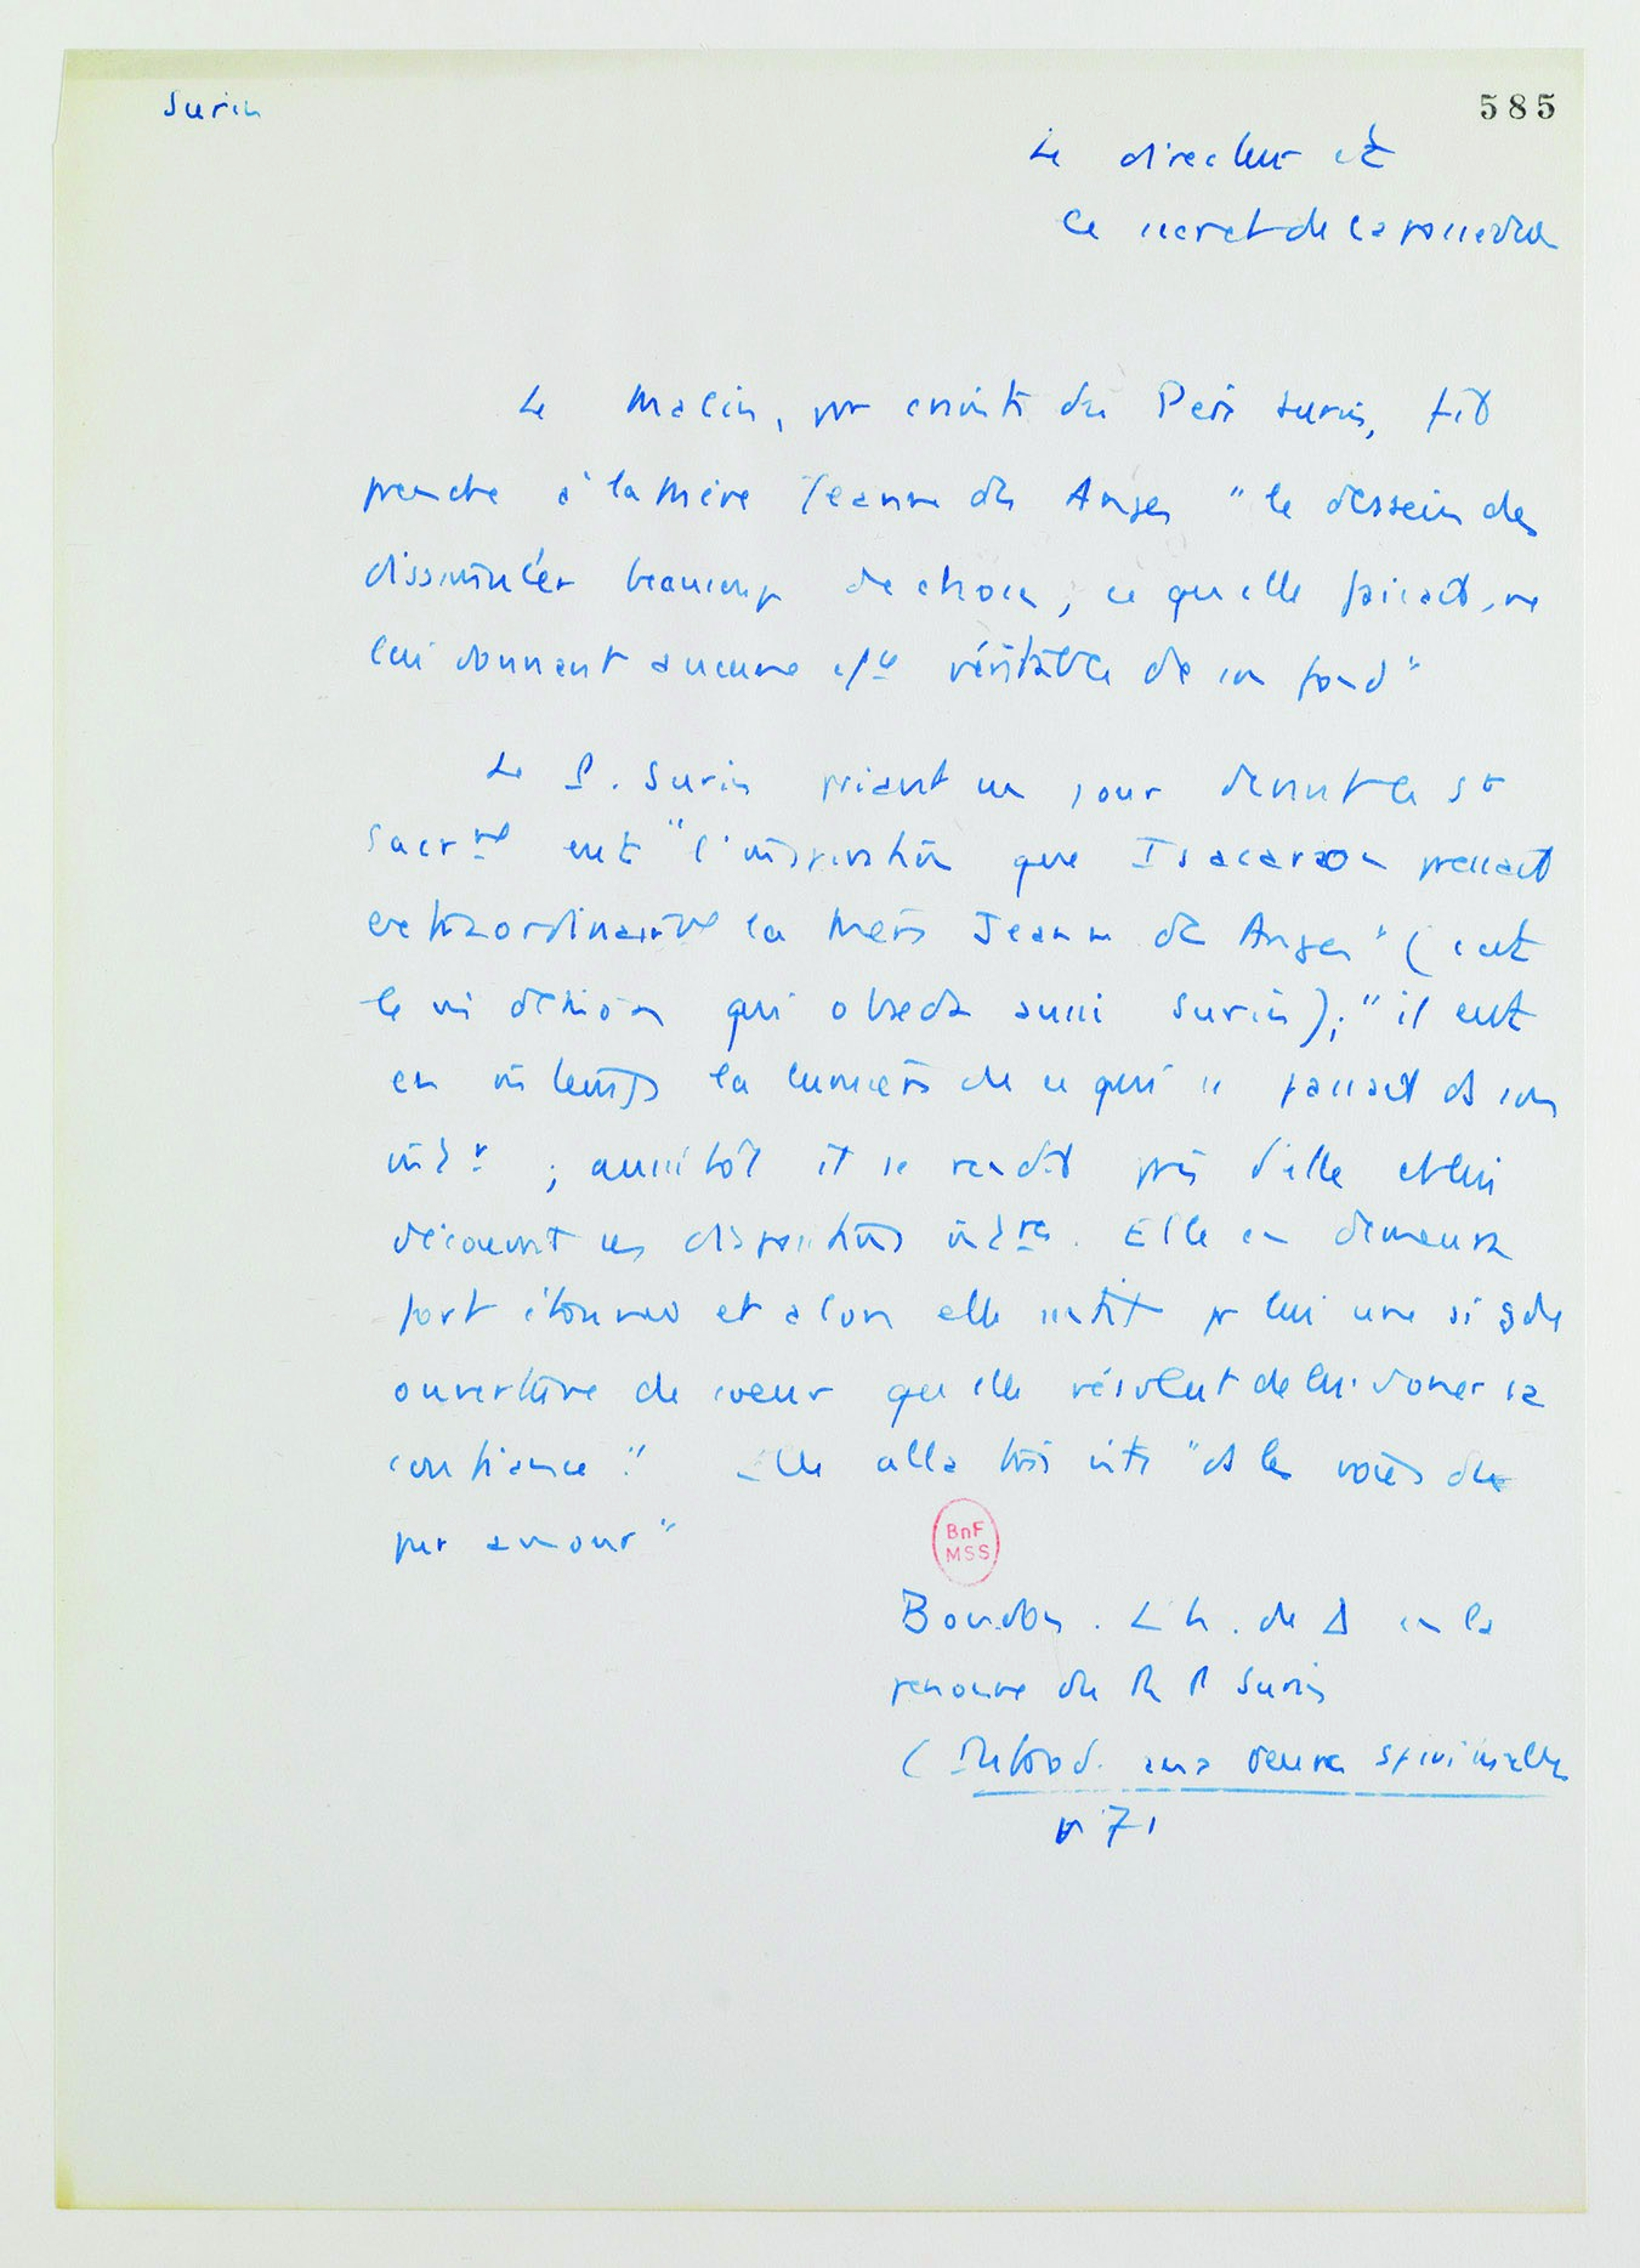 Surin
585
Le directeur et
le secret de la possédée
Le Malin, par crainte du Père Surin, fit
prendre à la Mère Jeanne des Anges " le dessein de
dissimuler beaucoup de choses, ce qu'elle faisait, ne
lui donnant aucune véritable de son fond "
Le P. Surin priant un jour devant le St
Sacrmt eut " l' que Isacaron pressait
extraordinairmt la Mère Jeanne des Anges " ( c'est
le m̄ démon qui obséda aussi Surin) ; " il eut
en m̄ temps la lumière de ce qui se passait ds son
intr ; aussitôt il se rendit près d'elle et lui
découvrit ses dispositions intres. Elle en demeura
fort étonnée et alors elle sentit pr lui une si gde
ouverture de coeur qu'elle résolut de lui donner sa
confiance ". Elle alla très vite " ds les voies du
pur amour "
BnF
MSS
Boudon. L'h. de Δ en la
personne du R P Surin
( aux oeuvres spirituelles
p 71